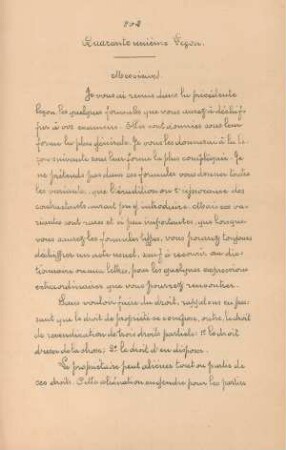 802
Quarante unième Leçon.
Messieurs,
Je vous ai remis dans la précédente
leçon les quelques formules que vous aurez à déchif-
frer à vos examens. Elles sont données sous leur
forme la plus générale. Je vous les donnerai à la le-
çon suivante sous leur forme la plus compliquée. Je
ne prétends pas dans ces formules vous donner toutes
les variantes que l'érudition ou l'ignorance des
contractants auront pu y introduire. Mais ces va-
riantes sont rares et si peu importantes, que lorsque
vous saurez les formules types, vous pourrez toujours
déchiffrer un acte usuel, sauf à recourir au dic-
tionnaire ou au lettré, pour les quelques expressions
extraordinaires que vous pourrez rencontrer.
Sans vouloir faire du droit, rappelons en pas-
sant que le droit de propriété se compose, outre le droit
de revendication de trois droits partiels: 1° le droit
d'user de la chose; 2° le droit d'en disposer.
Le propriétaire peut aliéner tout ou partie de
ces droits. Cette aliénation engendre pour les parties